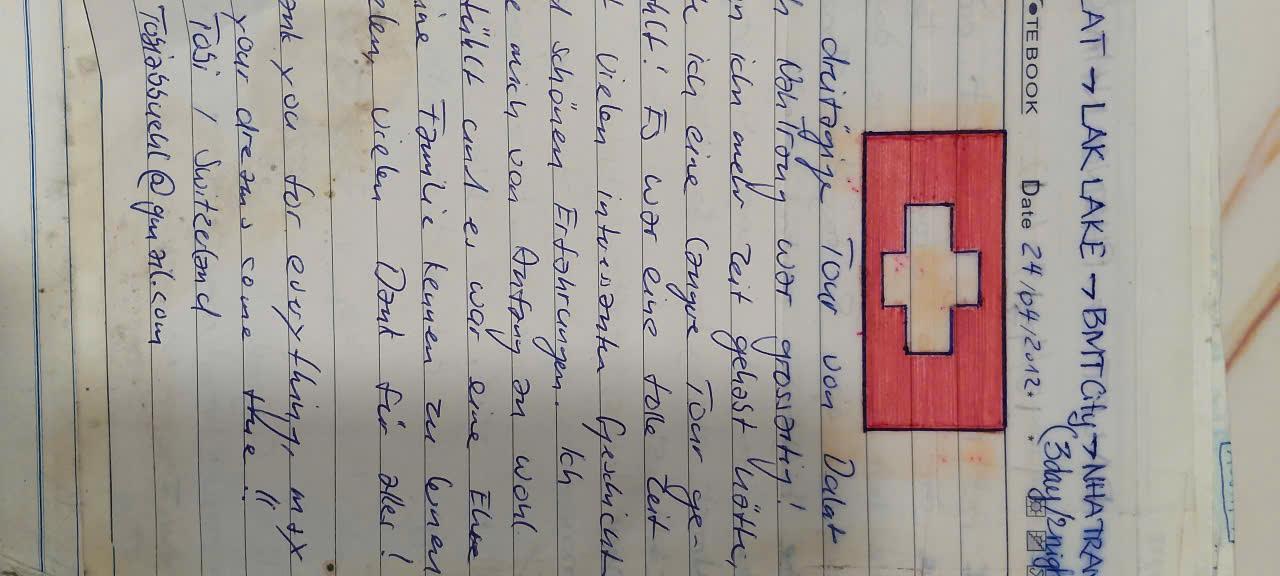 LAT → LAK LAKE → BMT City → NHATRAN
(3day/2nigh
OTEBOOK Date 24/04/2012
dreitägige Tour von Dalat
h Nah Trang war grosartig!
n ich mehr Zeit gehabt hätte,
e ich eine langere Tour ge-
hlt! Es war eine tolle Zeit
t vielen interesanten Geschicht
d schönen Erfahrungen. Ich
e mich von Anfang an wohl
fühlt und es war eine Ehre
ine Familie kennen zu lernen
elen, vielen Dank für alles!
ank you for everything, may
your dreams come true..
Tobi / Switzeland
Tobiasbuehl@gmail.com